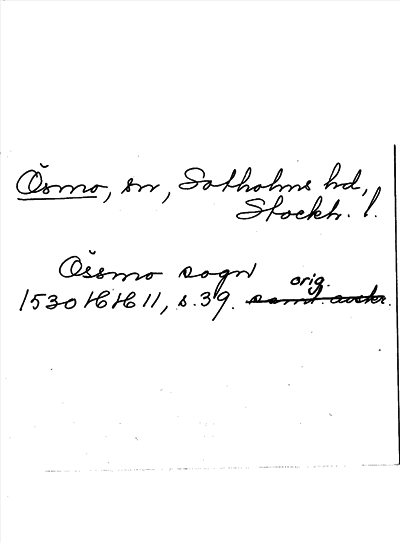 Ösmo, sn, Sotholms hd,
Stockh. l.
Össmo sogn
orig.
1530 HH 11, s. 39. samt. avskr.